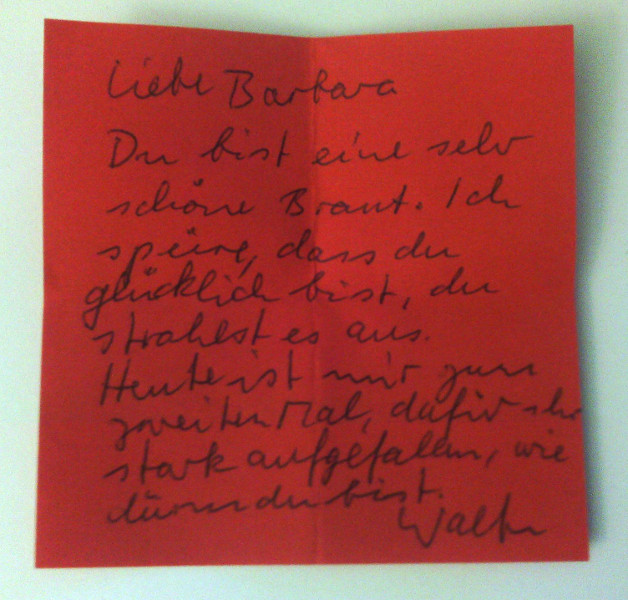 Liebe Barbara
Du bist eine sehr
schöne Braut. Ich
spüre, dass du
glücklich bist, du
strahlst es aus.
Heute ist mir zum
zweiten Mal, dafür sehr
stark aufgefallen, wie
dünn du bist.
Walter